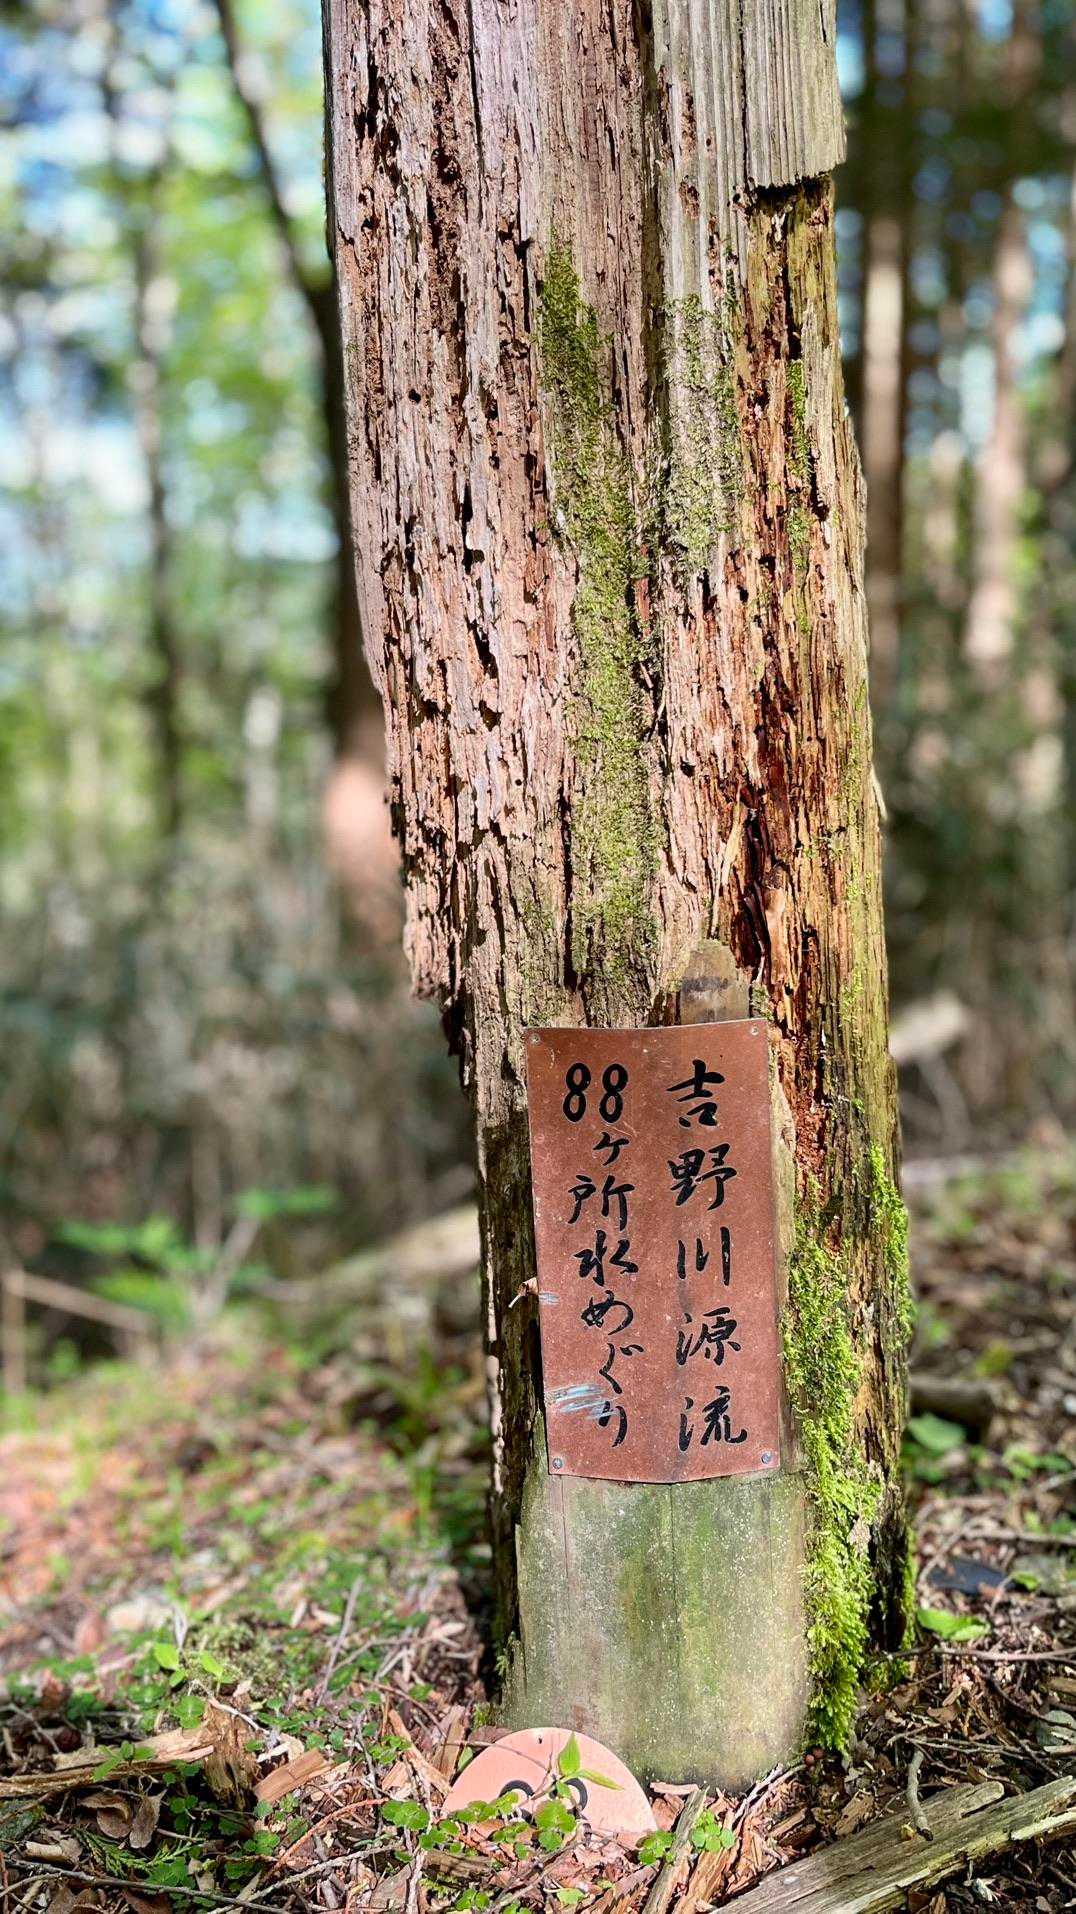 吉野川源流
88ヶ所水めぐり